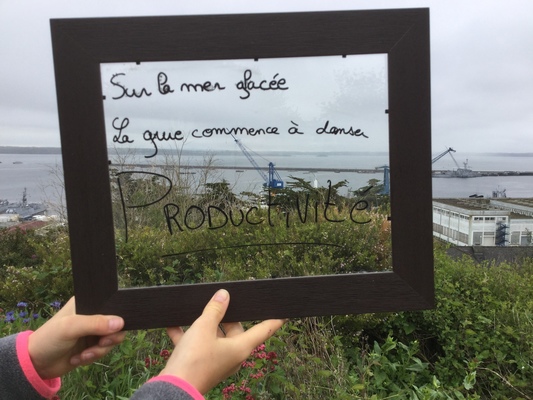 Sur la mer glacée
La grue commence à danser
PRODUCTIVITé